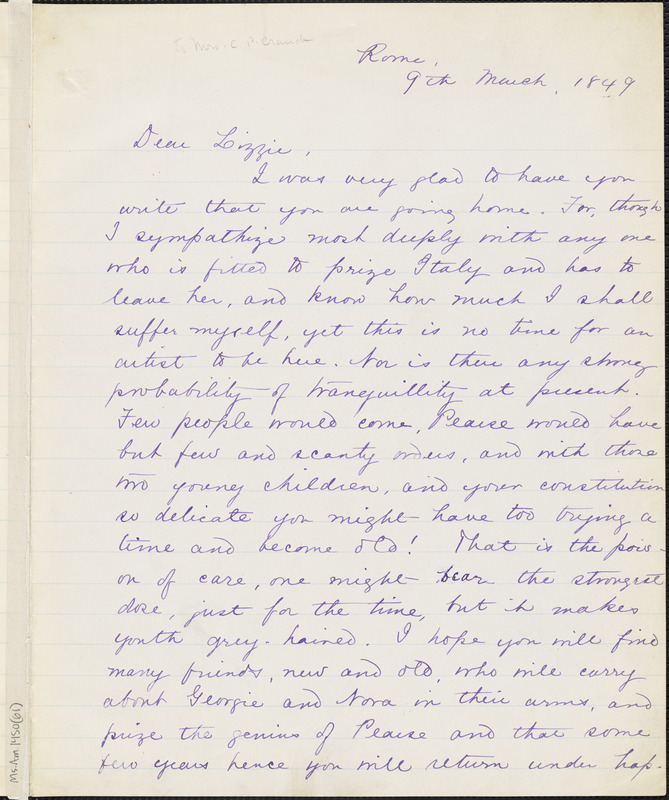 To Mrs. C. P. Cranch
Rome,
9th March, 1849
Dear Lizzie,
I was very glad to have you
write that you are going home. For, though
I sympathize most deeply with any one
who is fitted to prize Italy and has to
leave her, and know how much I shall
suffer myself, yet this is no time for an
artist to be here. Nor is there any strong
probability of tranquillity at present.
Few people would come, Pearse would have
but few and scanty orders, and with those
two young children, and your constitution
so delicate you might have too trying a
time and become old! That is the pois-
on of care, one might bear the strongest
dose, just for the time, but it makes
youth grey-haired. I hope you will find
many friends, new and old, who will carry
about Georgie and Nora in their arms, and
prize the genius of Pearse and that some
few years hence you will return under hap-
Ms. Am. 1450 (61)